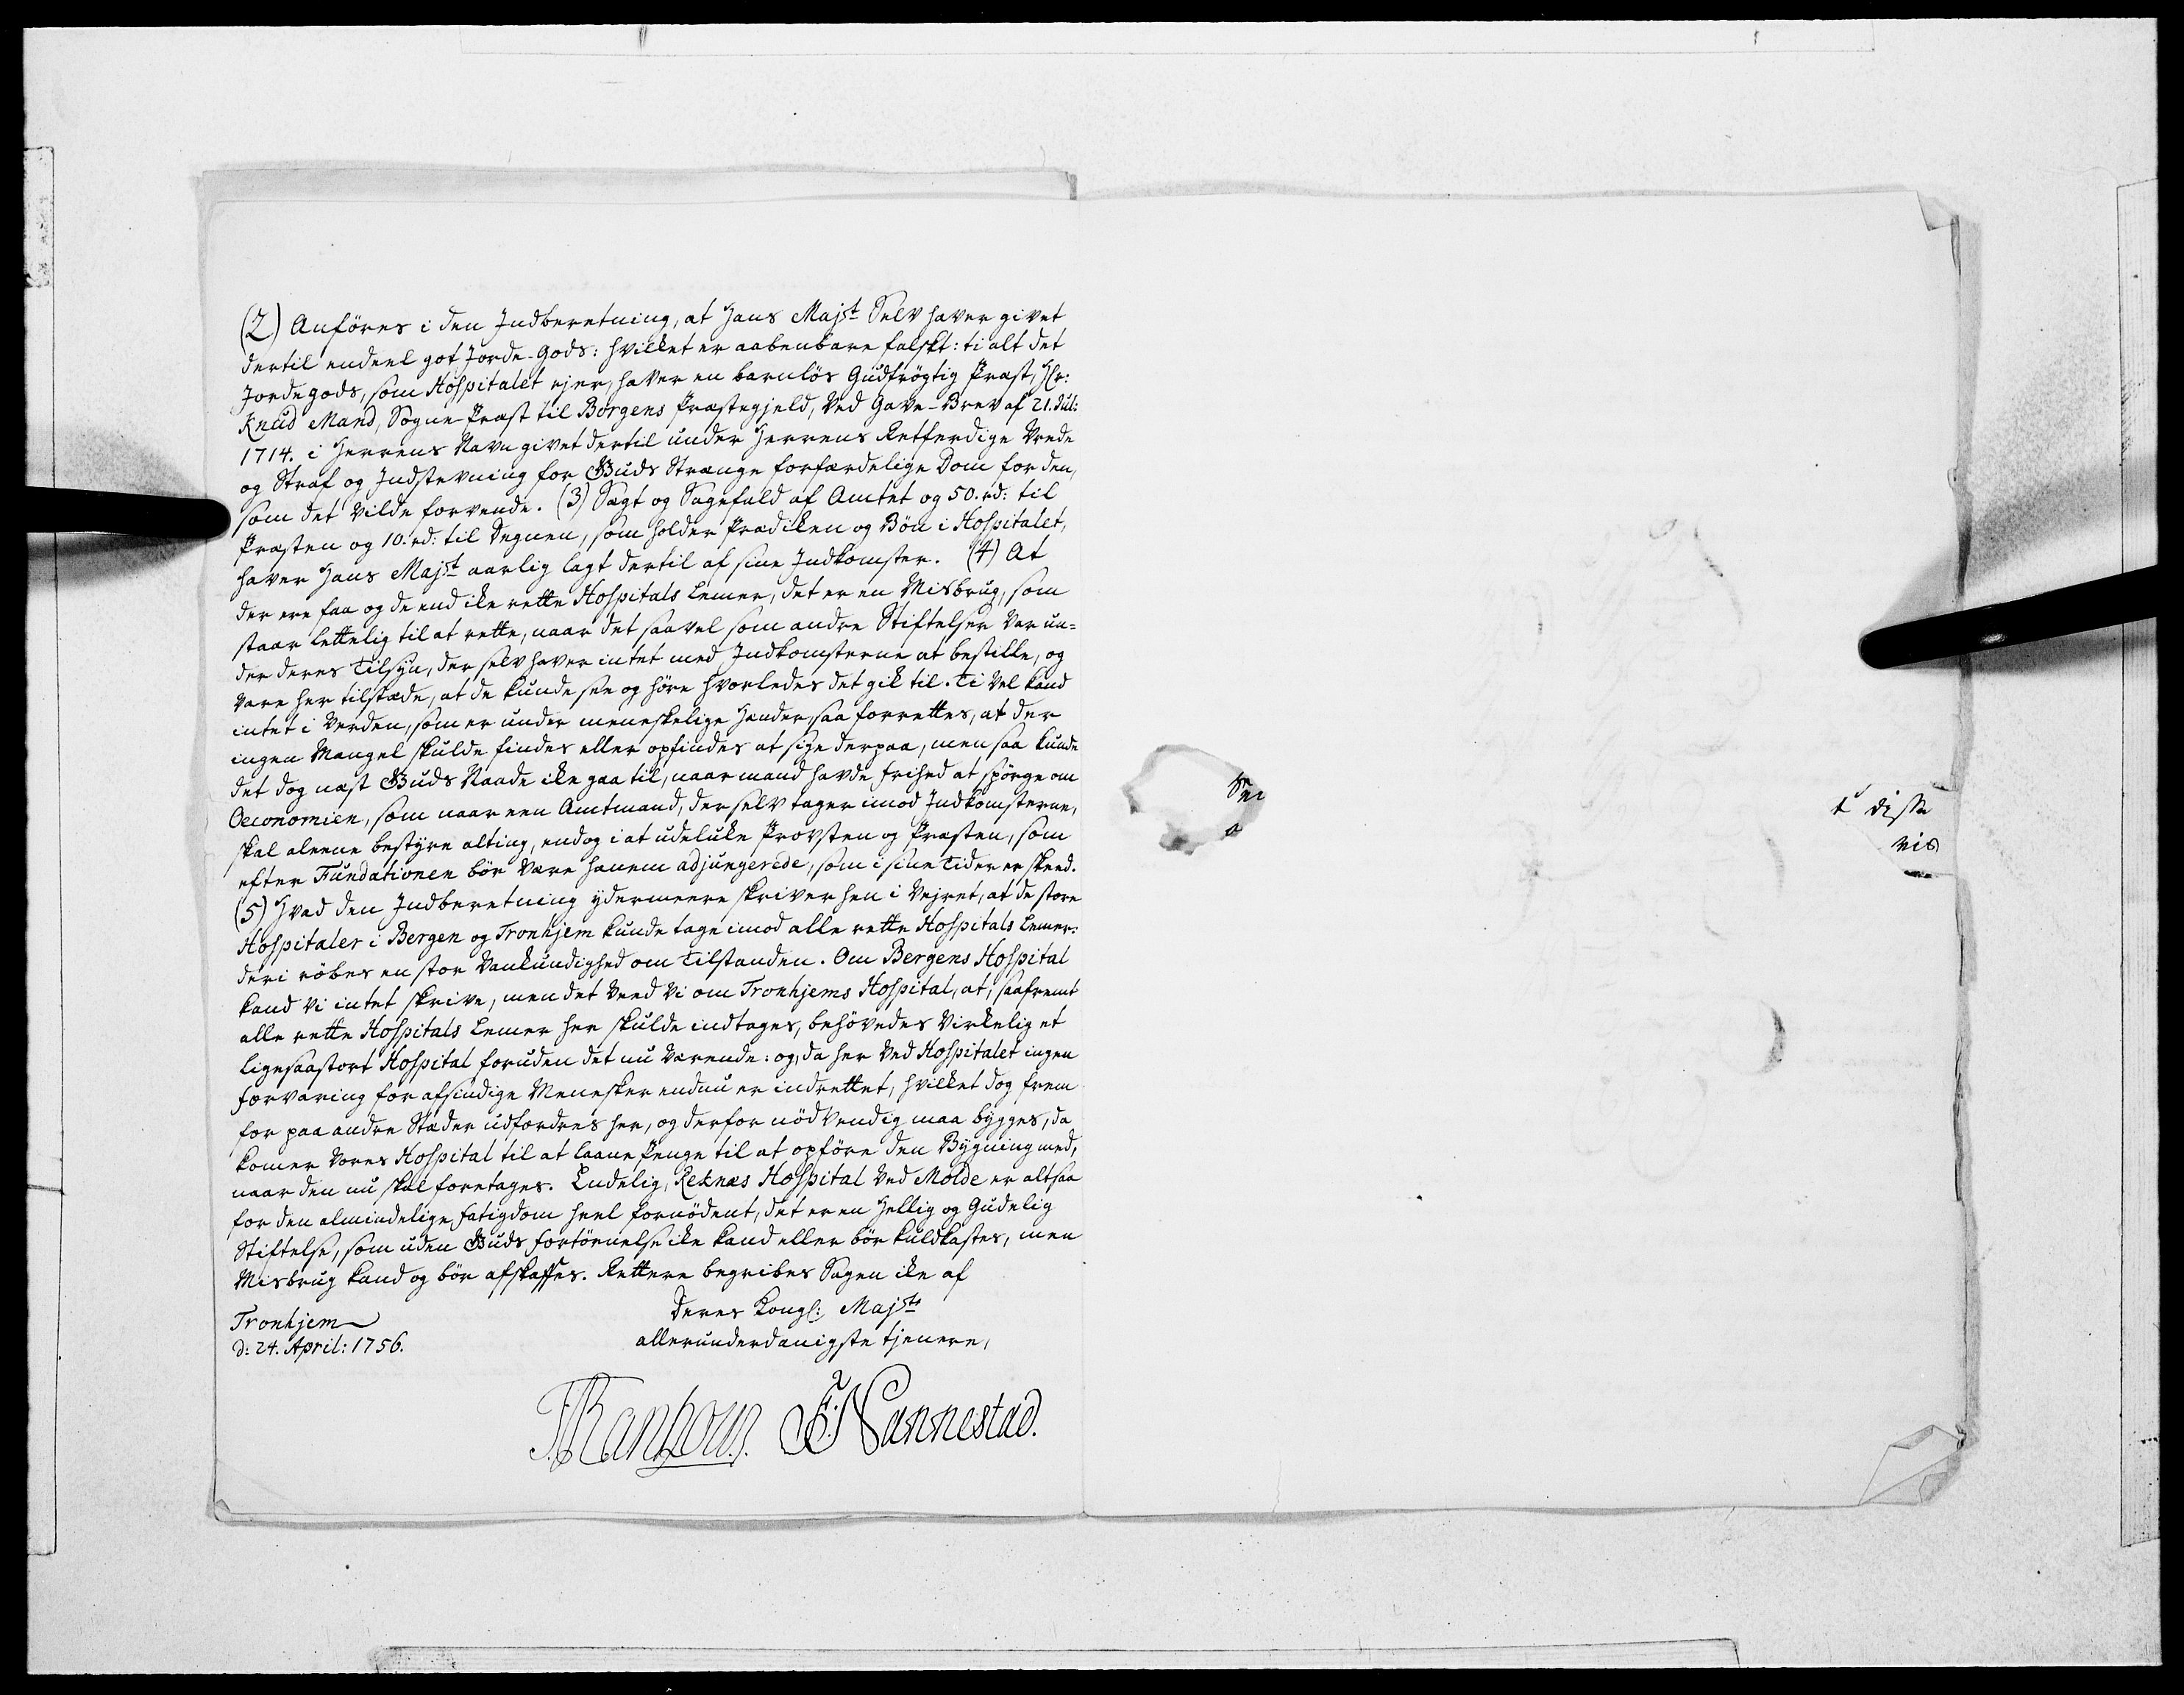 (2) Anföres i den Indberetning, at Hans Majst Selv haver givet
dertil endeel got Jorde-Gods: hvilket er aabenbare falskt: ti alt det
Jordegods, som Hospitalet ejer, haver en barnlös Gudfrögtig Præst, Hr:
Knud Mand, Sogne-Præst til Borgens Præstegjeld, ved Gave-Brev af 21. Jul:
1714. i Herrens Navn givet dertil under Herrens Retferdige Vrede
og Straf og Indstevning for Guds Strænge forfærdelige Dom for den,
som det vilde forvende. (3) Sagt og Sagefald af Amtet og 50. rd: til
Præsten og 10. rd: til Degnen, som holder Prædiken og Bön i Hospitalet,
haver Hans Majst aarlig lagt dertil af sine Indkomster. (4) At
der ere faa og de end ike rette Hospitals Lemer, det er en Misbrug, som
staar lettelig til at rette, naar det saavel som andre Stiftelser var un=
der deres Tilsyn, der selv haver intet med Indkomsterne at bestille, og
vare her tilstæde, at de kunde see og höre hvorledes det gik til. Ti vel kand
intet i Verden, som er under meneskelige Hænder, saa forrettes, at der
ingen Mangel skulde findes eller opfindes at sige derpaa, men saa kunde
det dog næst Guds Naade ike gaa til, naar mand havde frihed at spörge om
Oeconomien, som naar een Amtmand, der selv tager imod Indkomsterne,
skal aleene bestyre alting, endog i at udeluke Provsten og Præsten, som
efter Fundationen bör være hanem adjungerede, som i sine Tider er skeed.
(5) Hvad den Indberetning ydermeere skriver hen i Vejret, at de store
Hospitaler i Bergen og Tronhjem kunde tage imod alle rette Hospitals Lemer:
deri röbes en stor Vankundighed om Tilstanden. Om Bergens Hospital
kand vi intet skrive, men det veed vi om Tronhjems Hospital, at, saafremt
alle rette Hospitals Lemer her skulde indtages, behövedes virkelig et
ligesaastort Hospital foruden det nu værende: og, da her ved Hospitalet ingen
forvaring for afsindige Menesker endnu er indrettet, hvilket dog frem
for paa andre Stæder udfordres her, og derfor nödvendig maa bygges, da
komer vores Hospital til at laane Penge til at opföre den Bygning med,
naar den nu skal foretages. Endelig, Reknæs Hospital ved Molde er altsaa
for den almindelige fatigdom heel fornödent, det er en Hellig og Gudelig
Stiftelse, som uden Guds fortörnelse ike kand eller bör kuldkastes, men
Misbrug kand og bör afskaffes. Rettere begribes Sagen ike af
Deres Kongl: Majsts
Tronhjem
allerunderdanigste tjenere,
d: 24. April: 1756.
JRantzow. F: Nannestad.